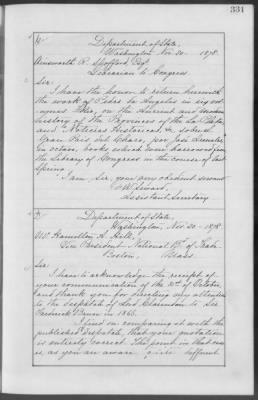 331
Department of State,
Washington Nov. 30 - 1878.
Ainsworth R. Spofford, Esqr.
Librarian to Congress
Sir:
I have the honor to return herewith
the work of Pedro de Angelis in six vol-
umes folio, on the Ancient and Modern
history of the Provinces of the La Plata
and "Noticias Historicas &
Gran Pais del Chaco, por José
in octavo, books which were borrowed from
the Library of Congress in the course of last
Spring.
I am Sir, your very obedient servant
F. W. Seward,
Assistant Secretary
Department of State,
Washington, Nov. 30 - 1878.
Hamilton A. Hill,
Vice President National Bd. of Trade
Boston, Mass.
Sir:
I have to acknowledge the receipt of
your communication of the 31st of October,
and thank you for directing my attention
to the despatch of Lord Clarendon to Sir
Frederick Bruce in 1865.
I find on comparing it with the
published despatch, that your quotation
is entirely correct. The point in that case
is, as you are aware, quite different